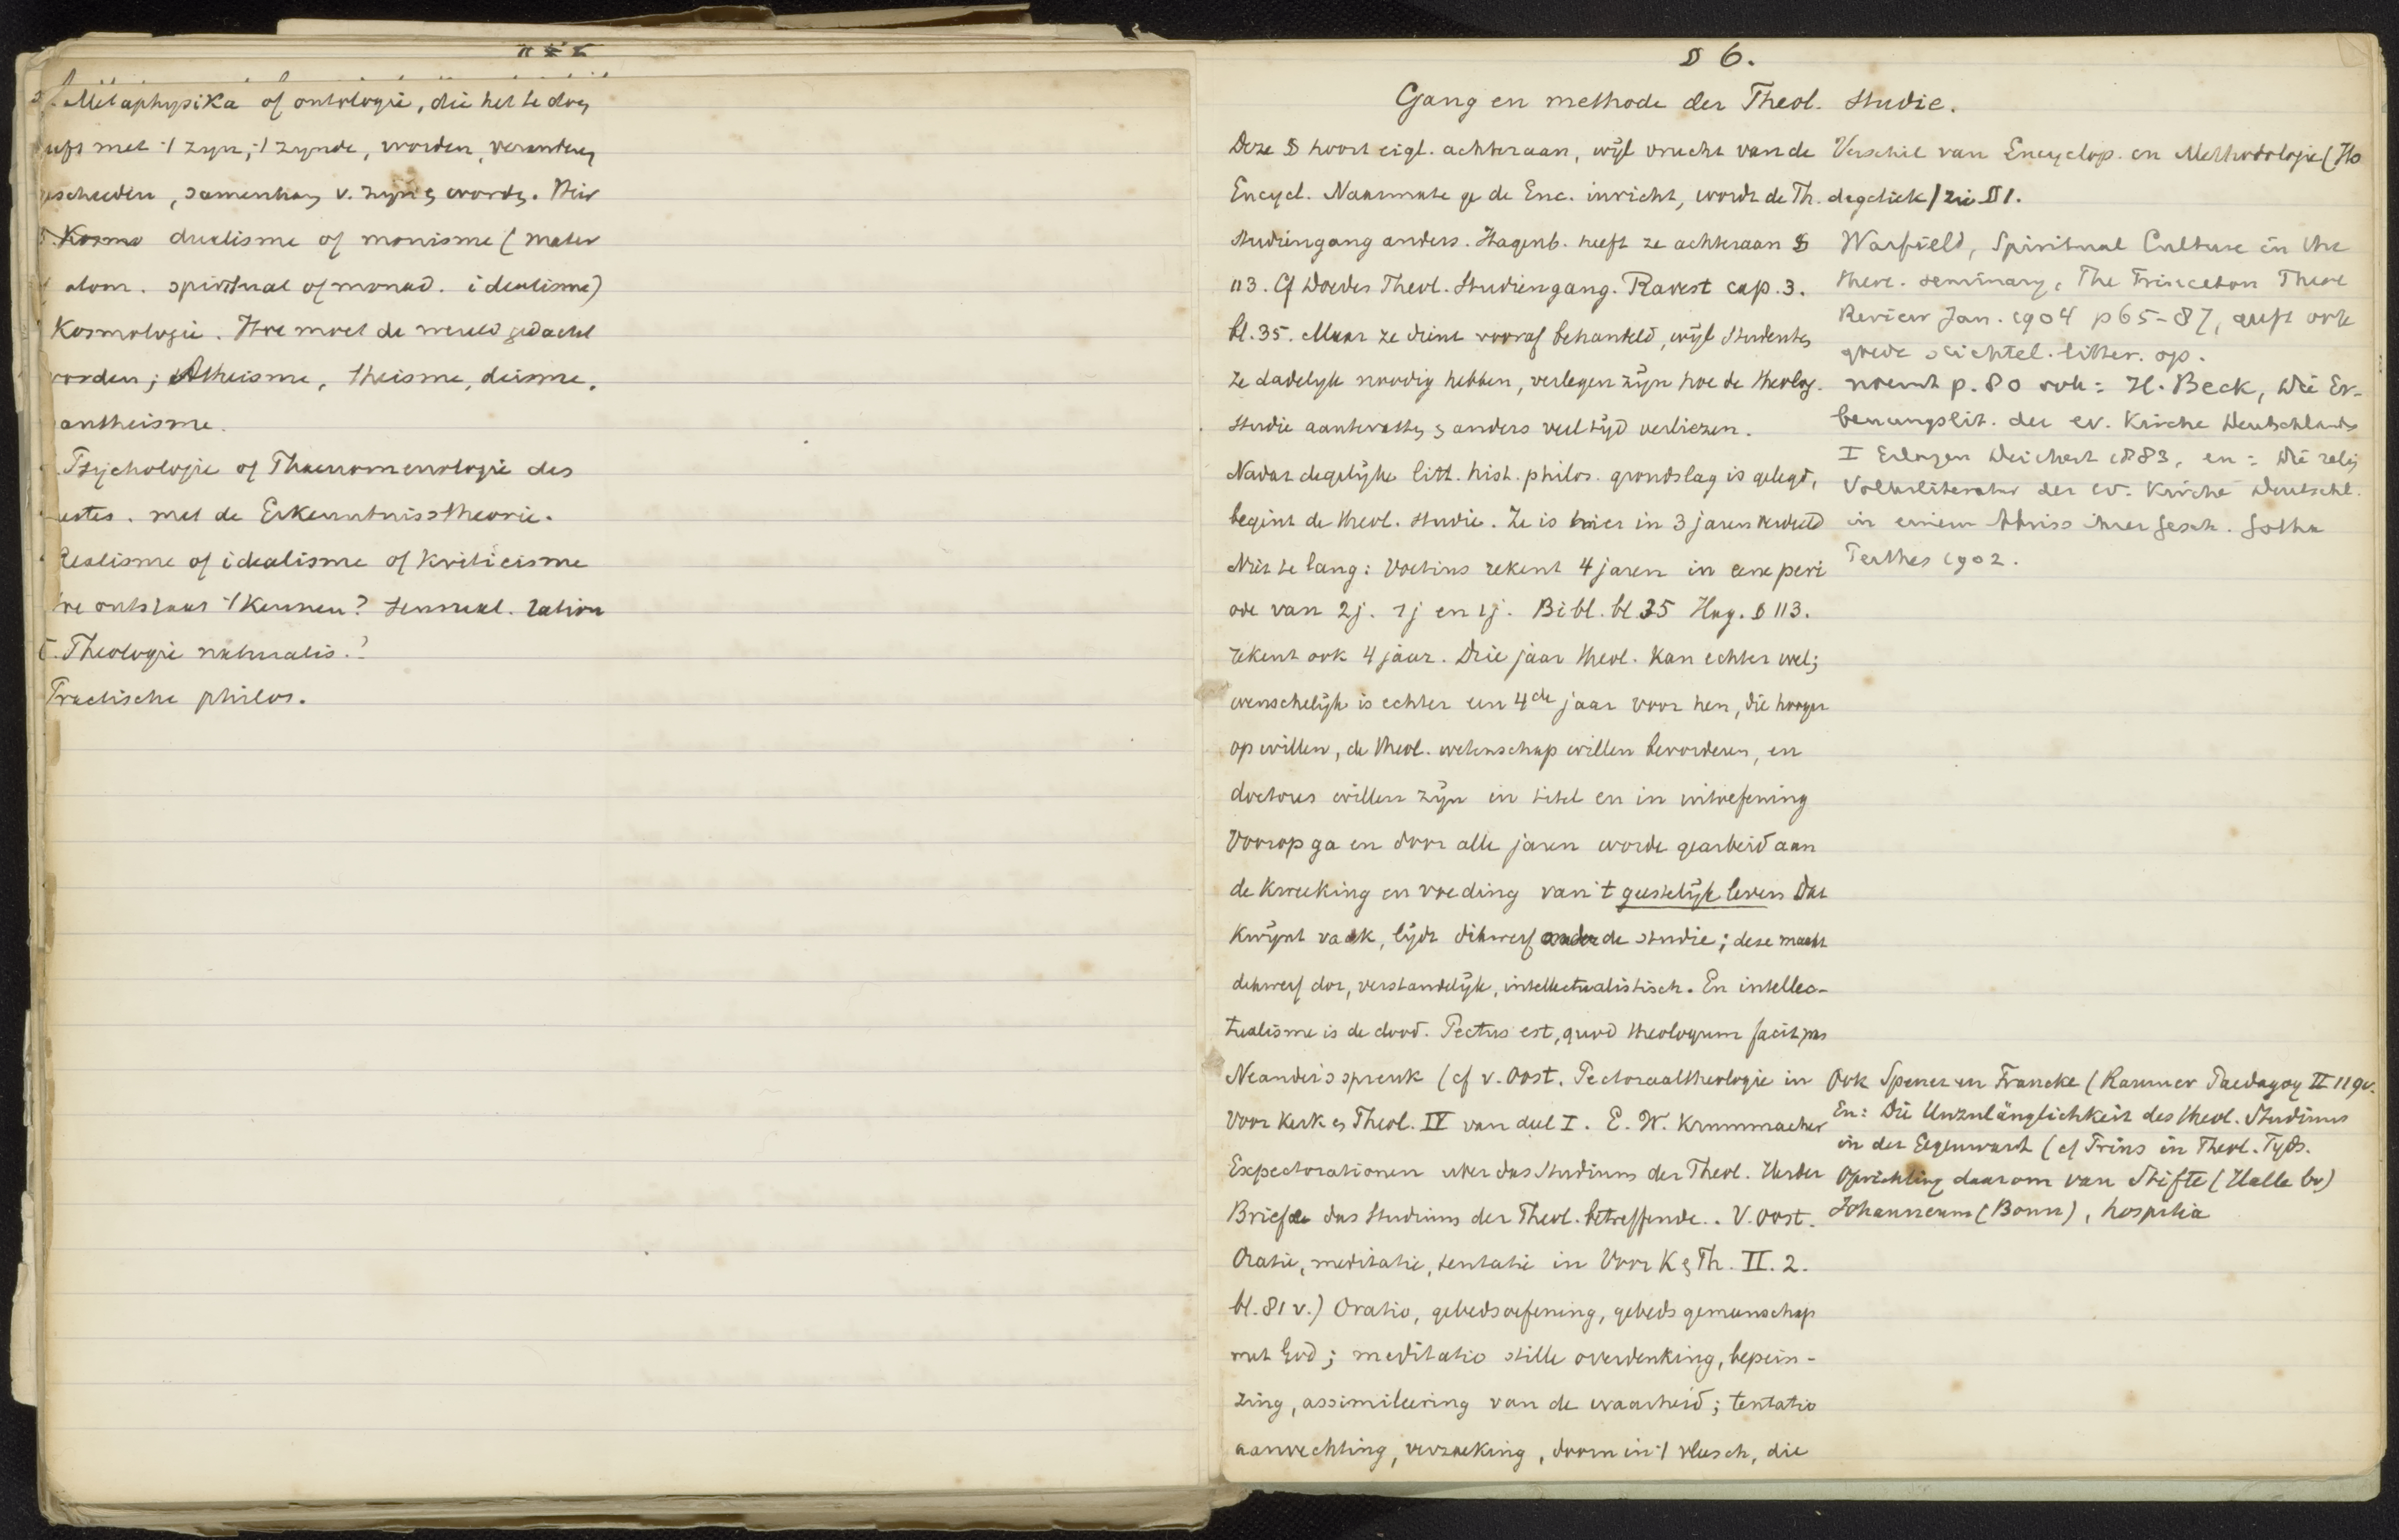 Metaphysika of ontologie, die het te doen
met 't zyn, 't zynde, worden, veranderen
samenhang v. zyn en worden. Hier
Kosmo dualisme of monisme (mater
atom. spiritual of monad. idealisme)
Kosmologie. Hoe moet de wereld gedacht
worden; Atheisme, theisme, deisme,
antheisme.
Psychologie of Phaenomenologie des
met de Erkenntnisstheorie.
Realisme of idealisme of Kriticisme
ontstaat 't Kennen? sensual. ration
5. Theologie naturalis.?
Practische philos.
§ 6.
Gang en methode der Theol. studie.
Deze § hoort eigl. achteraan, wijl vrucht van de
Encycl. Naarmate ge de Enc. inricht, wordt de Th.
studiengang anders. Hagenb. heeft ze achteraan §
113. Cf Doedes Theol. Studiengang. Ravest cap. 3.
bl. 35. Maar ze dient vooraf behandeld, wijl studenten
ze dadelyk noodig hebben, verlegen zijn hoe de theolog.
studie aantevatten, en anders veel tijd verliezen.
Nadat degelijke litt. hist. philos. grondslag is gelegd,
begint de theol. studie. Ze is hier in 3 jaren verdeeld
Niet te lang: Voetius rekent 4 jaren in eene peri
ode van 2j. 1j en 1j. Bibl. bl 35 Hag. § 113.
rekent ook 4 jaar. Drie jaar theol. kan echter wel;
wenschelijk is echter een 4de jaar voor hen, die hooger
op willen, de theol. wetenschap willen bevorderen, en
doctores willen zijn in titel en in uitoefening
Voorop ga en door alle jaren worde gearbeid aan
de kweeking en voeding van 't geestelijk leven Dat
kwijnt vaak, lijdt dikwerf onder de studie; deze maakt
dikwerf dor, verstandelijk, intellectualistisch. En intellec-
tualisme is de dood. Pectus est, quod theologum facit, was
Neander's spreuk (cf v. Oost. Pectoraaltheologie in
Voor Kerk en Theol. IV van deel I. E. W. Krummacher
Expectorationen uber das Studium der Theol. Herder
Briefe das Studium der Theol. betreffende. . V. Oost.
Oratie, meditatie, tentatie in Voor K en Th. II. 2.
bl. 81 v.) Oratio, gebedsoefening, gebedsgemeenschap
met God; meditatio stille overdenking, bepein-
zing, assimileering van de waarheid; tentatio
aanvechting, verzoeking, doorn in 't vleesch, die
Verschil van Encyclop. en Methodologie (Ho
degetiek / zie § 1.
Warfield, Spiritual Culture in the
theol. seminary, The Princeton Theol
Review Jan. 1904 p 65-87, geeft ook
goede stichtel. litter. op.
noemt p. 80 ook: H. Beck, Die Er-
bauungslit. der ev. Kirche Deutschlands
I Erlangen Deichert 1883, en: Die relig
Volksliteratur der ev. Kirche Deutschl.
in einem Abriss ihrer Gesch. Gotha
Perthes 1902.
Ook Spener en Francke (Raumer Paedagog II 119v.
En: Die Unzulänglichkeit des theol. Studiums
in der Gegenwart (cf Prins in Theol. Tyds.
Oprichting daarom van Stifte (Halle bv)
Johanneum (Bonn), hospitia